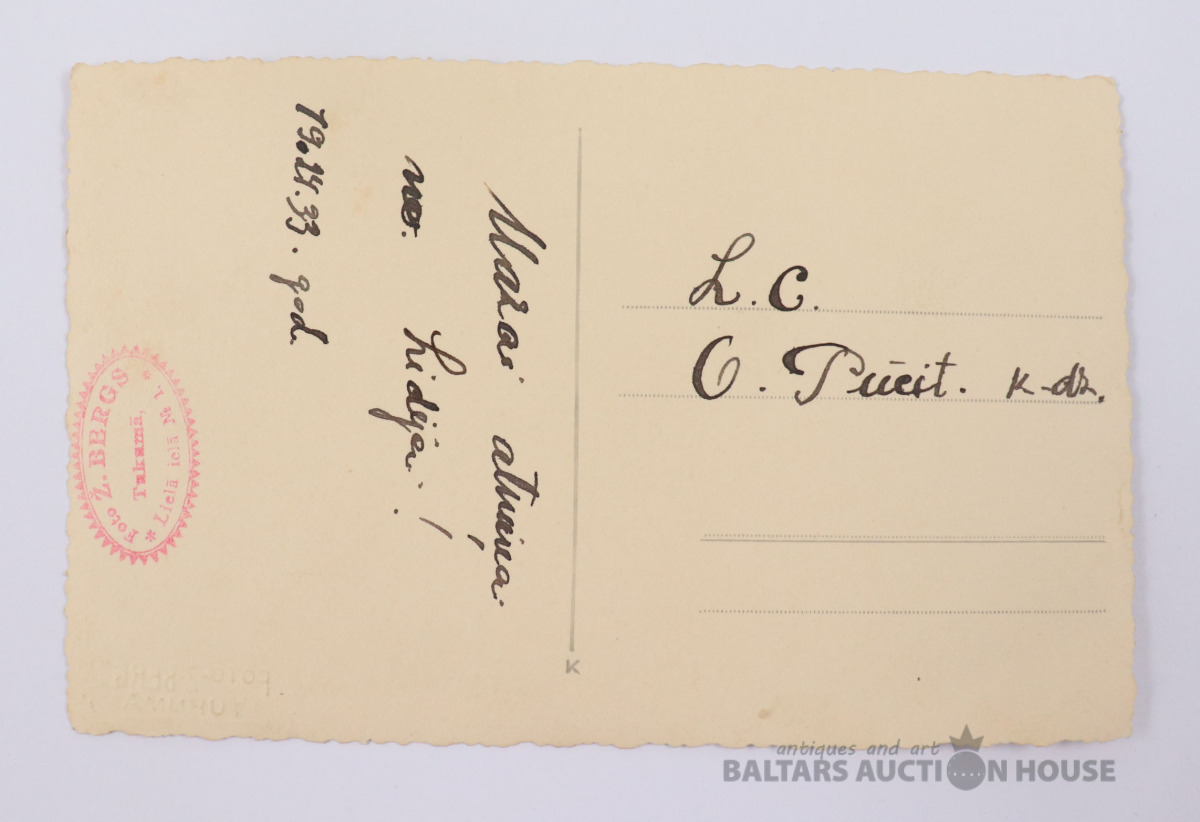 Mazai atmiņai
no Lidija.!
19.24.33. god.
L. C.
O. Pūcīt. k-dz.
Foto Ž. BERGS
Tukumā,
* Lielā ielā № 1. *
K
antiques and art
BALTARS AUCTION HOUSE